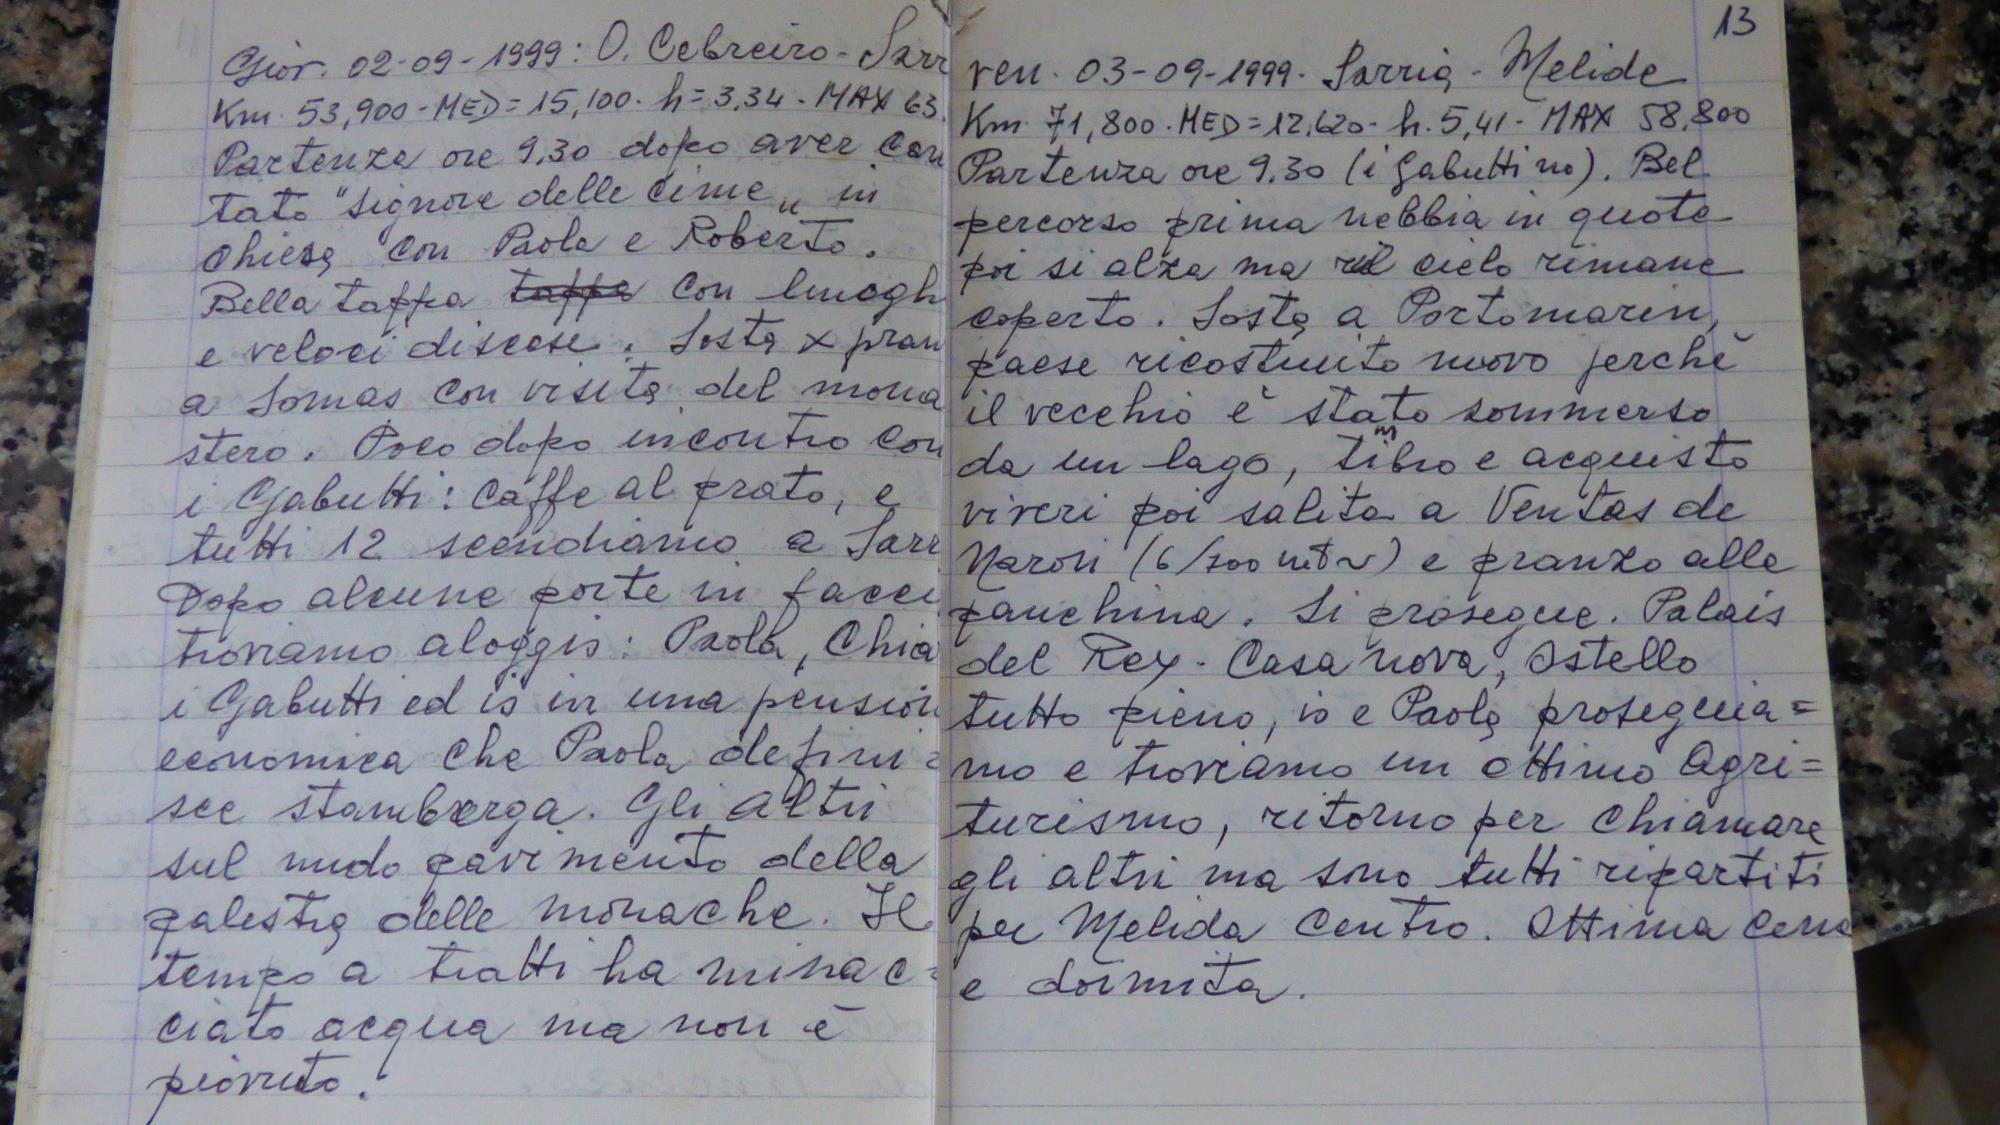 Gior. 02-09-1999: O. Cebreiro - Sarr
Km. 53,900 - MED = 15,100 - h = 3,34 - MAX 63.
Partenza ore 9,30 dopo aver can
tato "Signore delle cime„ in
chiesa con Paola e Roberto.
Bella tappa tappa con lunogh
e veloci discese. Sosta x pran
a Somas con visita del mona
stero. Poco dopo incontro con
i Gabutti: caffe al prato, e
tutti 12 scendiamo a Sarr
Dopo alcune porte in facci
troviamo aloggio: Paola, Chia
i Gabutti ed io in una pension
economica che Paola defini=
sce stamberga. Gli altri
sul nudo pavimento della
palestra delle monache. Il
tempo a tratti ha minac=
ciato acqua ma non è
piovuto.
13
ven. 03-09-1999. Sarria - Melide
Km. 71,800. MED = 12,620 - h. 5,41 - MAX 58,800
Partenza ore 9.30 (i Gabutti no). Bel
percorso prima nebbia in quota
poi si alza ma il cielo rimane
coperto. Sosta a Portomarin,
paese ricostruito nuovo perchè
il vecchio è stato sommerso
da un lago, timbro e acquisto
viveri poi salita a Ventas de
Naron (6/700 mt) e pranzo alla
panchina. Si prosegue. Palais
del Rey - Casa nova, Ostello
tutto pieno, io e Paola proseguia=
mo e troviamo un ottimo Agri=
turismo, ritorno per chiamare
gli altri ma sono tutti ripartiti
per Melida centro. Ottima cena
e dormita.